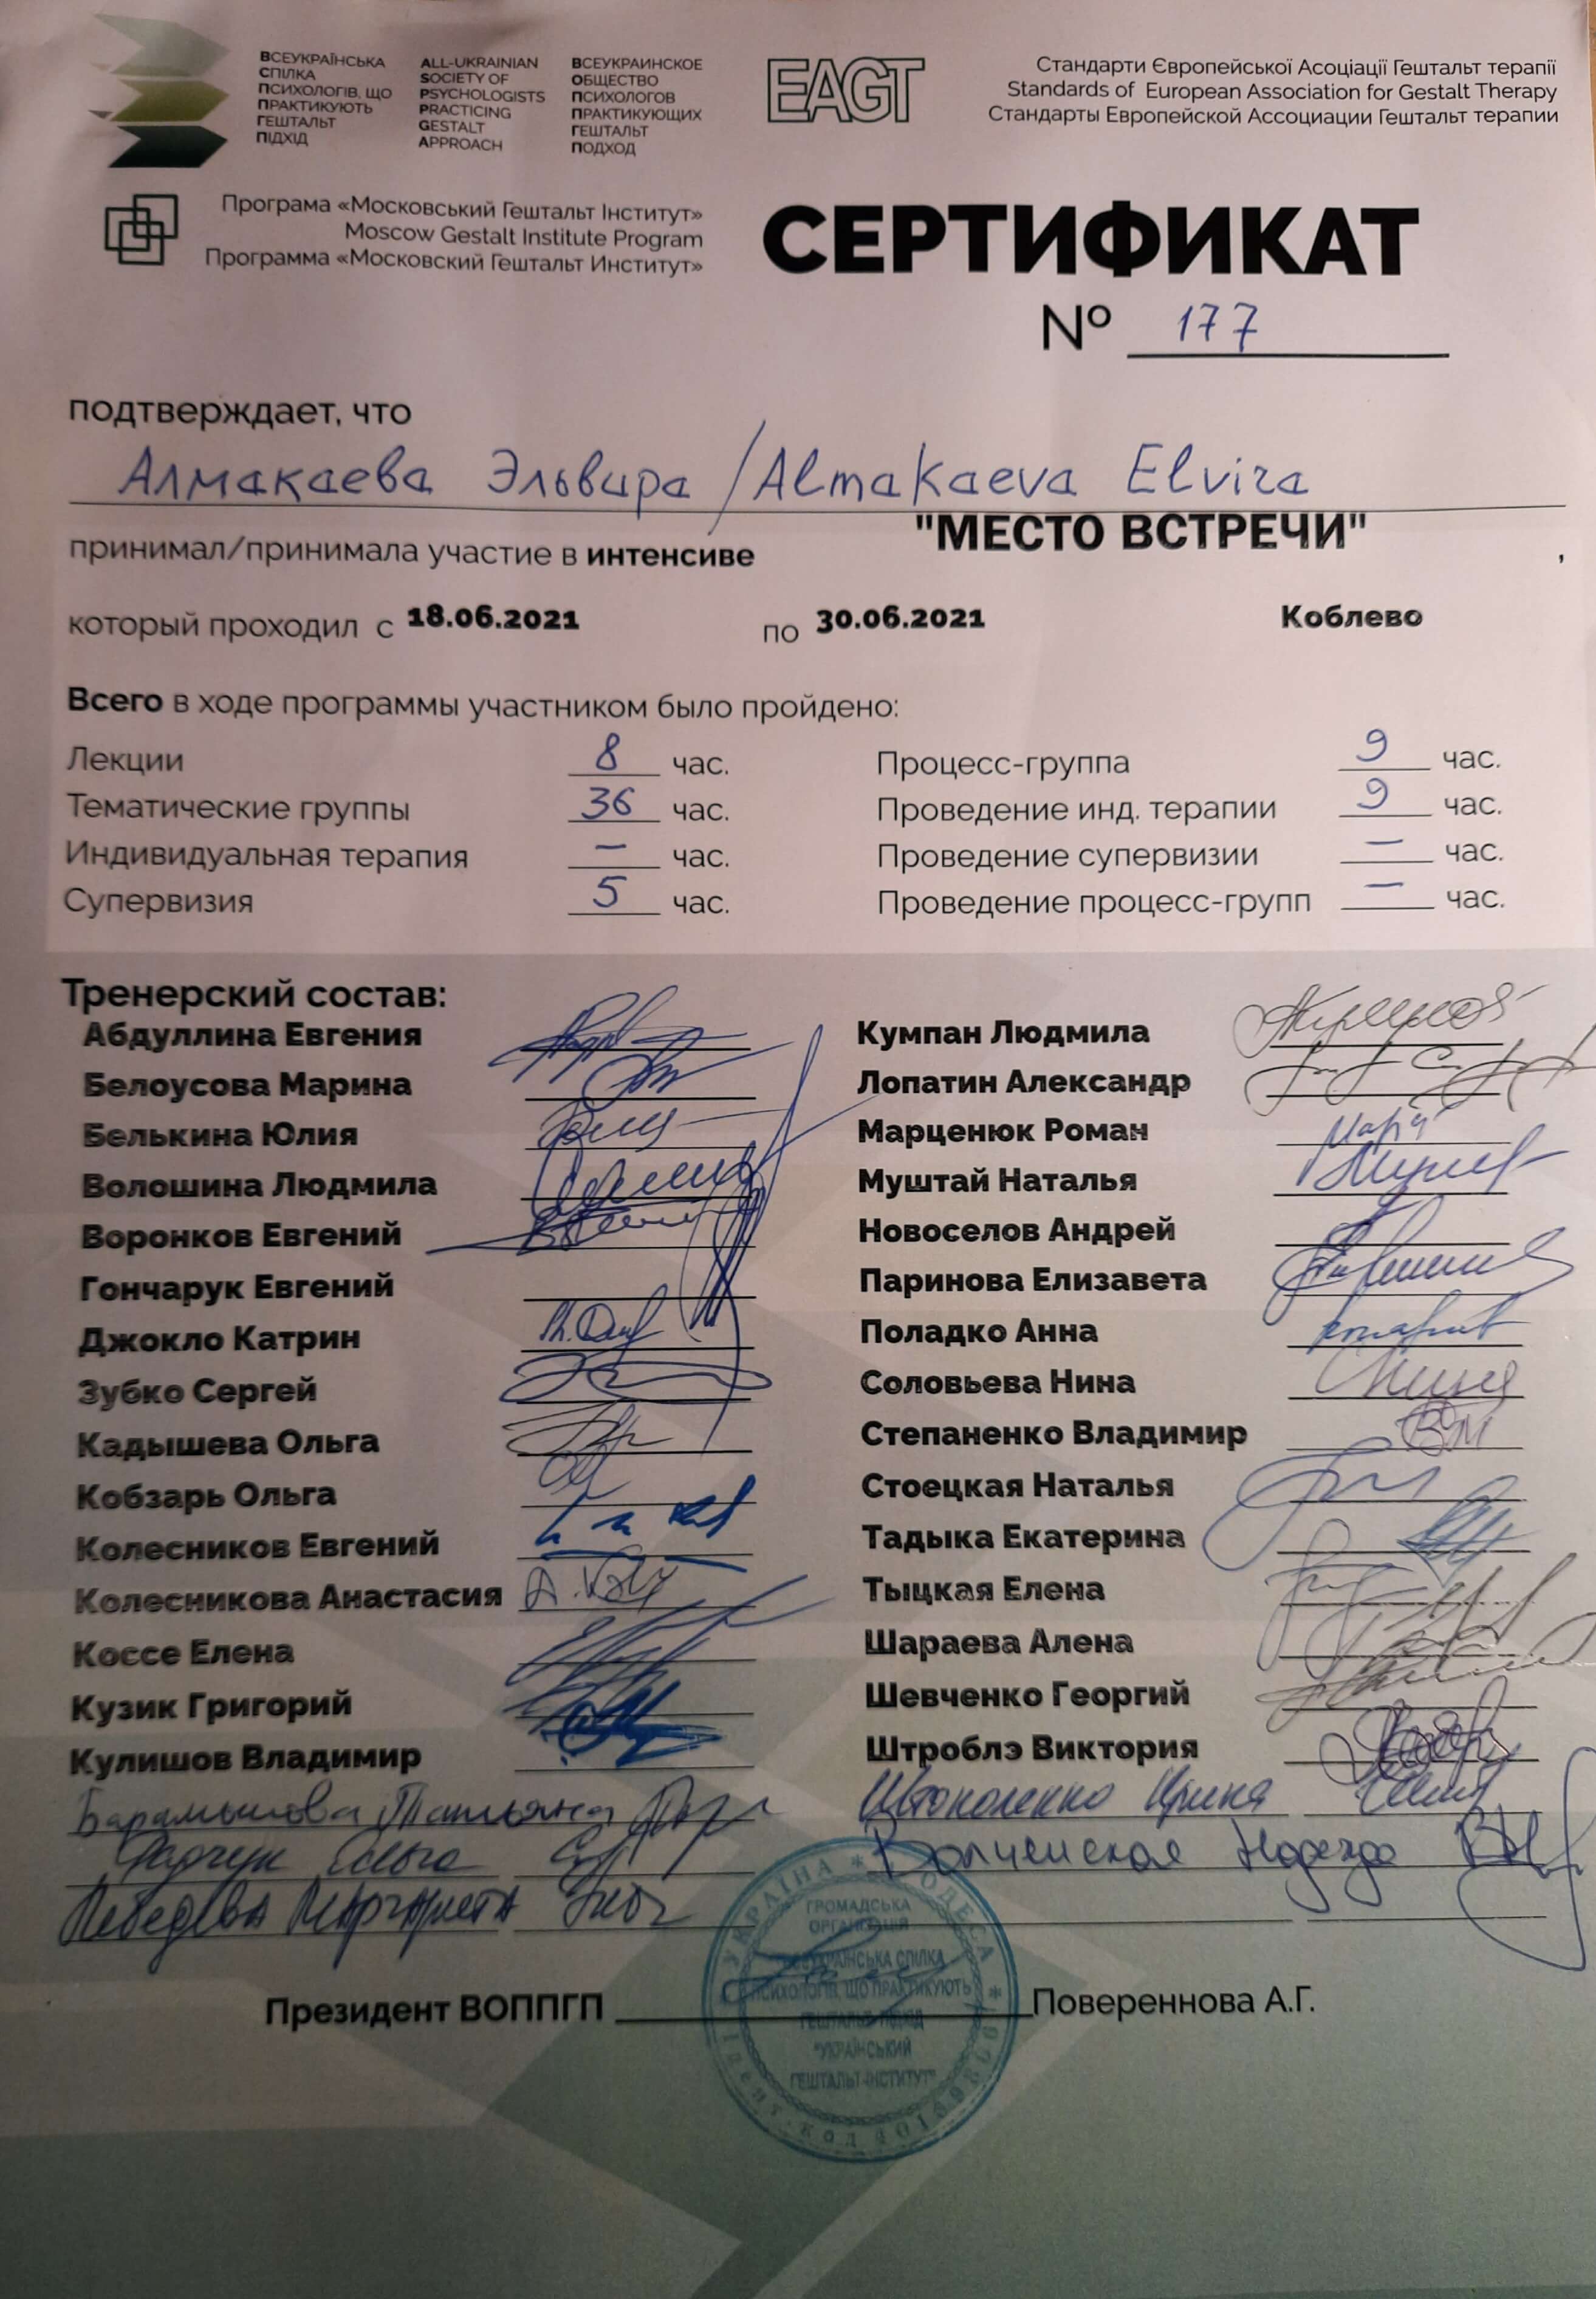 ВСЕУКРАЇНСЬКА
СПІЛКА
ПСИХОЛОГІВ, ЩО
ПРАКТИКУЮТЬ
ГЕШТАЛЬТ
ПІДХІД
ALL-UKRAINIAN
SOCIETY OF
PSYCHOLOGISTS
PRACTICING
GESTALT
APPROACH
ВСЕУКРАИНСКОЕ
ОБЩЕСТВО
ПСИХОЛОГОВ
ПРАКТИКУЮЩИХ
ГЕШТАЛЬТ
ПОДХОД
EAGT
Стандарти Європейської Асоціації Гештальт терапії
Standards of European Association for Gestalt Therapy
Стандарты Европейской Ассоциации Гештальт терапии
Програма «Московський Гештальт Інститут»
Moscow Gestalt Institute Program
Программа «Московский Гештальт Институт»
СЕРТИФИКАТ
№ 177
подтверждает, что
Алмакаева Эльвира / Almakaeva Elvira
принимал/принимала участие в интенсиве "МЕСТО ВСТРЕЧИ" ,
который проходил с 18.06.2021 по 30.06.2021 Коблево
Всего в ходе программы участником было пройдено:
Лекции 8 час. Процесс-группа 9 час.
Тематические группы 36 час. Проведение инд. терапии 9 час.
Индивидуальная терапия – час. Проведение супервизии – час.
Супервизия 5 час. Проведение процесс-групп – час.
Тренерский состав:
Абдуллина Евгения Кумпан Людмила
Белоусова Марина Лопатин Александр
Белькина Юлия Марценюк Роман
Волошина Людмила Муштай Наталья
Воронков Евгений Новоселов Андрей
Гончарук Евгений Паринова Елизавета
Джокло Катрин Поладко Анна
Зубко Сергей Соловьева Нина
Кадышева Ольга Степаненко Владимир
Кобзарь Ольга Стоецкая Наталья
Колесников Евгений Тадыка Екатерина
Колесникова Анастасия Тыцкая Елена
Коссе Елена Шараева Алена
Кузик Григорий Шевченко Георгий
Кулишов Владимир Штроблэ Виктория
Татьяна Ирина
Ольга Надежда
Лебедева Маргарита
Президент ВОППГП Повереннова А.Г.
УКРАЇНА * ОДЕСА *
ГРОМАДСЬКА
ОРГАНІЗАЦІЯ
ВСЕУКРАЇНСЬКА СПІЛКА
ПСИХОЛОГІВ, ЩО ПРАКТИКУЮТЬ
ГЕШТАЛЬТ ПІДХІД
"УКРАЇНСЬКИЙ
ГЕШТАЛЬТ-ІНСТИТУТ"